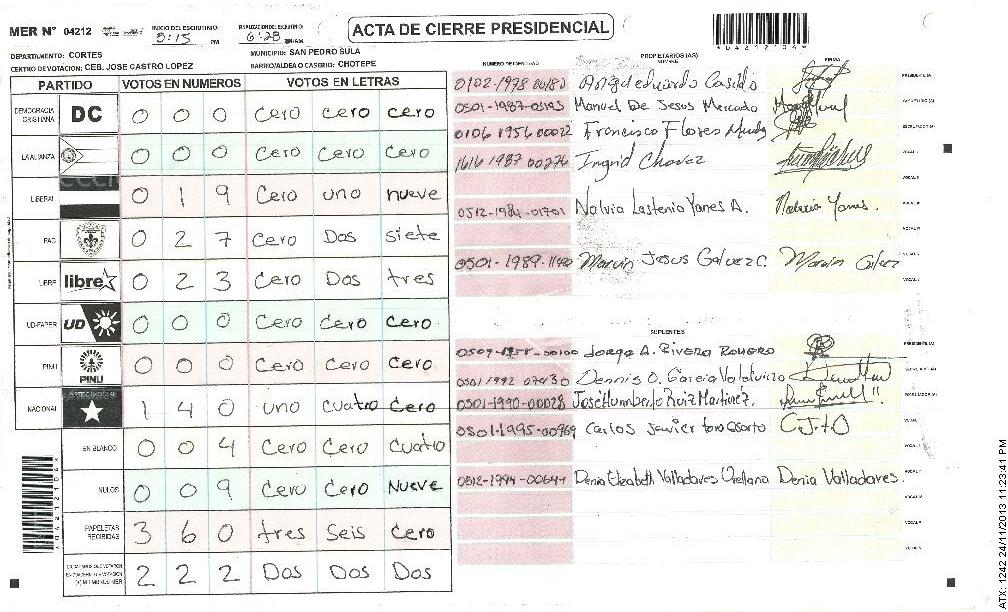 MER N° 04212
INICIO DEL ESCRUTINIO: 5:15 PM
6:28
ACTA DE CIERRE PRESIDENCIAL
04212104
DEPARTAMENTO: CORTES
MUNICIPIO: SAN PEDRO SULA
CENTRO DE VOTACION: CEB. JOSE CASTRO LOPEZ
BARRIO/ALDEA O CASERIO: CHOTEPE
PARTIDO VOTOS EN NUMEROS VOTOS EN LETRAS
DEMOCRACIA CRISTIANA DC 0 0 0 Cero cero cero
LA ALIANZA 0 0 0 Cero Cero Cero
LIBERAL 0 1 9 Cero uno nueve
PAC 0 2 7 Cero Dos siete
LIBRE libre 0 2 3 Cero Dos tres
UD-FAPER UD 0 0 0 Cero Cero Cero
PINU PINU 0 0 0 Cero Cero Cero
NACIONAL 1 4 0 uno cuatro Cero
EN BLANCO 0 0 4 Cero Cero Cuatro
NULOS 0 0 9 Cero Cero Nueve
PAPELETAS RECIBIDAS 3 6 0 tres seis cero
2 2 2 Dos Dos Dos
NUMERO DE IDENTIDAD PROPIETARIOS (AS) NOMBRE FIRMA
0102-1978 00183
0501-1987-03193 Manuel De Jesus Mercado
0106 1956 00022 Francisco Flores
1616 1987 00276 Ingrid Chavez
0512-1984-01701 Nalvia Lastenia Yanes A.
0501-1989-1140 Marvin Jesus Galvez C. Marvin Galvez
SUPLENTES
Jorge A. Rivera Romero
0501 1992 07430 Dennis O. Garcia
0501-1990-00028 Jose Humberto Ruiz Martinez.
0501-1995-00969 Carlos Javier C.J.T.O
Denia Elizabeth Valladares Orellana Denia Valladares.
ATX: 1242 24/11/2013 11:23:41 PM